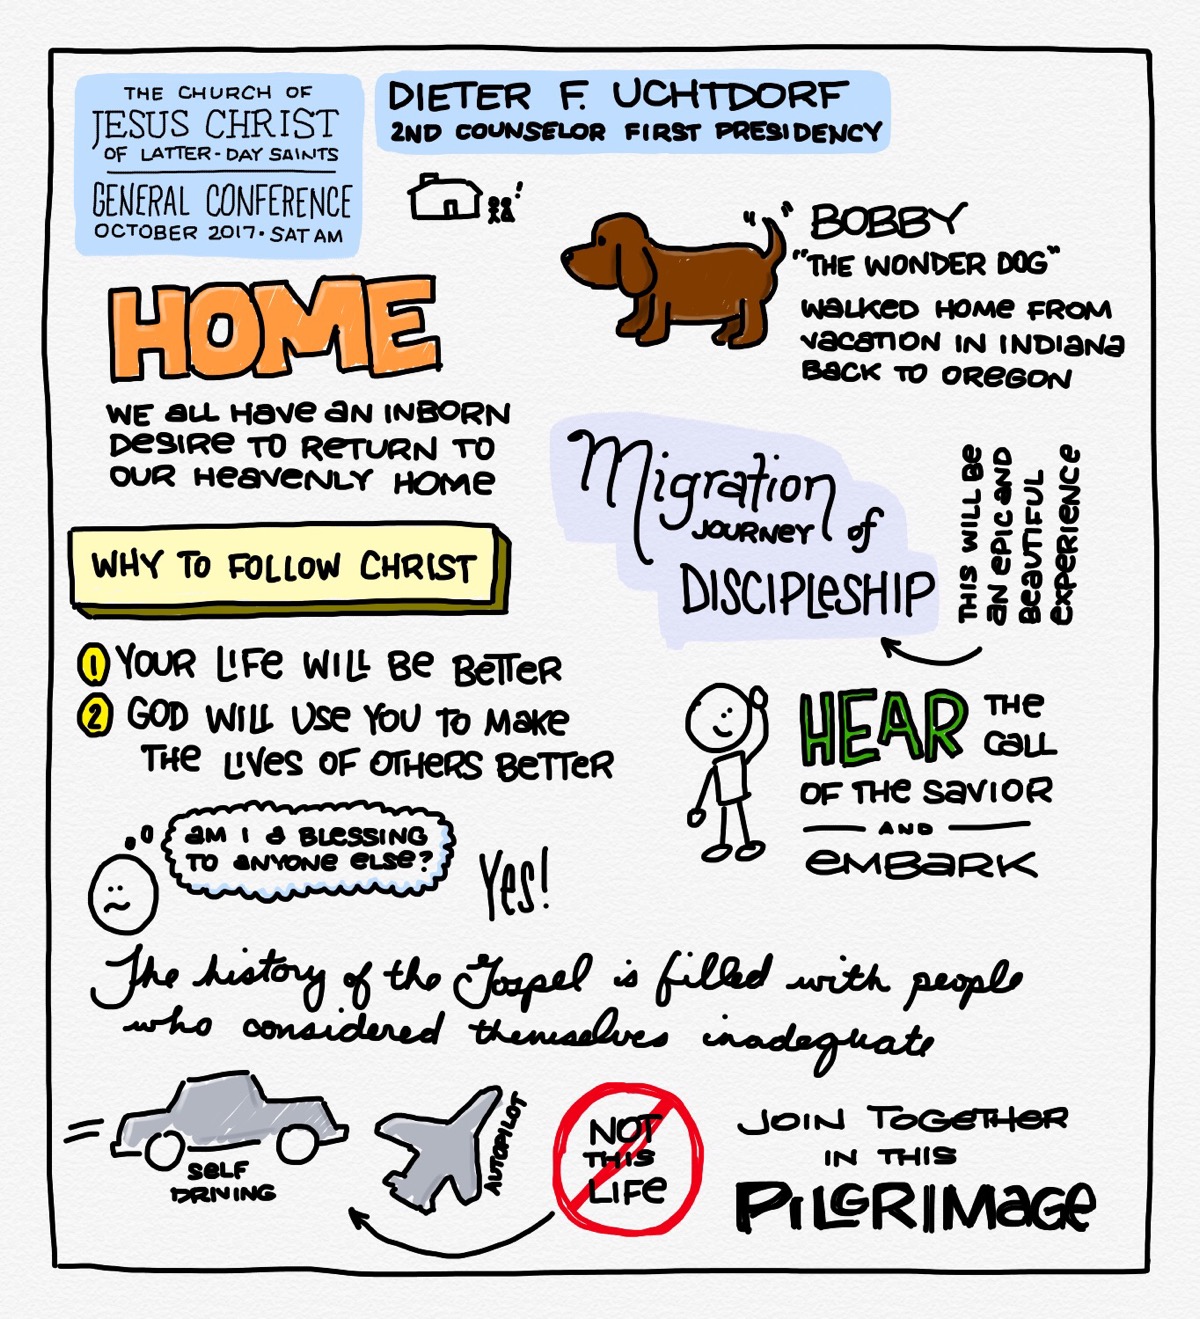 THE CHURCH OF
JESUS CHRIST
OF LATTER-DAY SAINTS
GENERAL CONFERENCE
OCTOBER 2017 • SAT AM
DIETER F. UCHTDORF
2ND COUNSELOR FIRST PRESIDENCY
!
HOME
WE ALL HAVE AN INBORN
DESIRE TO RETURN TO
OUR HEAVENLY HOME
BOBBY
"THE WONDER DOG"
WALKED HOME FROM
VACATION IN INDIANA
BACK TO OREGON
Migration
JOURNEY of
DISCIPLESHIP
THIS WILL BE
AN EPIC AND
BEAUTIFUL
EXPERIENCE
WHY TO FOLLOW CHRIST
1 YOUR LIFE WILL BE BETTER
2 GOD WILL USE YOU TO MAKE
THE LIVES OF OTHERS BETTER
HEAR THE
CALL
OF THE SAVIOR
AND
EMBARK
AM I A BLESSING
TO ANYONE ELSE?
YES!
The history of the Gospel is filled with people
who considered themselves inadequate
SELF
DRIVING
AUTOPILOT
NOT
THIS
LIFE
JOIN TOGETHER
IN THIS
PILGRIMAGE